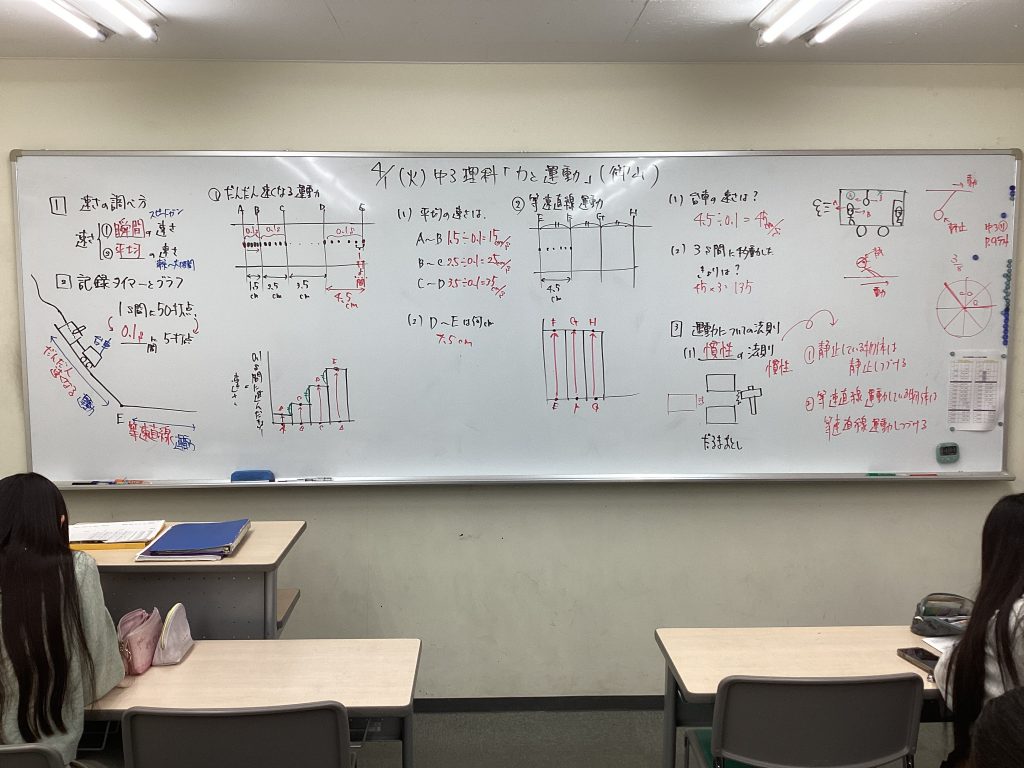 4/1(火) 中3理科「力と運動」
1 速さの調べ方
スピードガン
速さ ①瞬間の速さ
②平均の速さ
2 記録タイマーとグラフ
1s間に50打点
0.1s間 5打点
だんだん速くなる運動
E
等速直線運動
① だんだん速くなる運動
A B C D E
0.1s 0.1s 0.1s
1.5cm 2.5cm 3.5cm 4.5cm
0.1s間に進んだ
(1) 平均の速さは、
A〜B 1.5÷0.1=15cm/s
B〜C 2.5÷0.1=25cm/s
C〜D 3.5÷0.1=35cm/s
(2) D〜Eは何cm
② 等速直線運動
E F G H
4.5cm
F G H
E F G
(1) 台車の速さは?
4.5÷0.1=45cm/s
(2) 3s間に移動した
きょりは?
45×3=135
3 運動についての法則
(1) 慣性の法則
慣性
だるまおとし
① 静止している物体は
静止しつづける
② 等速直線運動している物体は
等速直線運動しつづける
動
静止
動
3/8